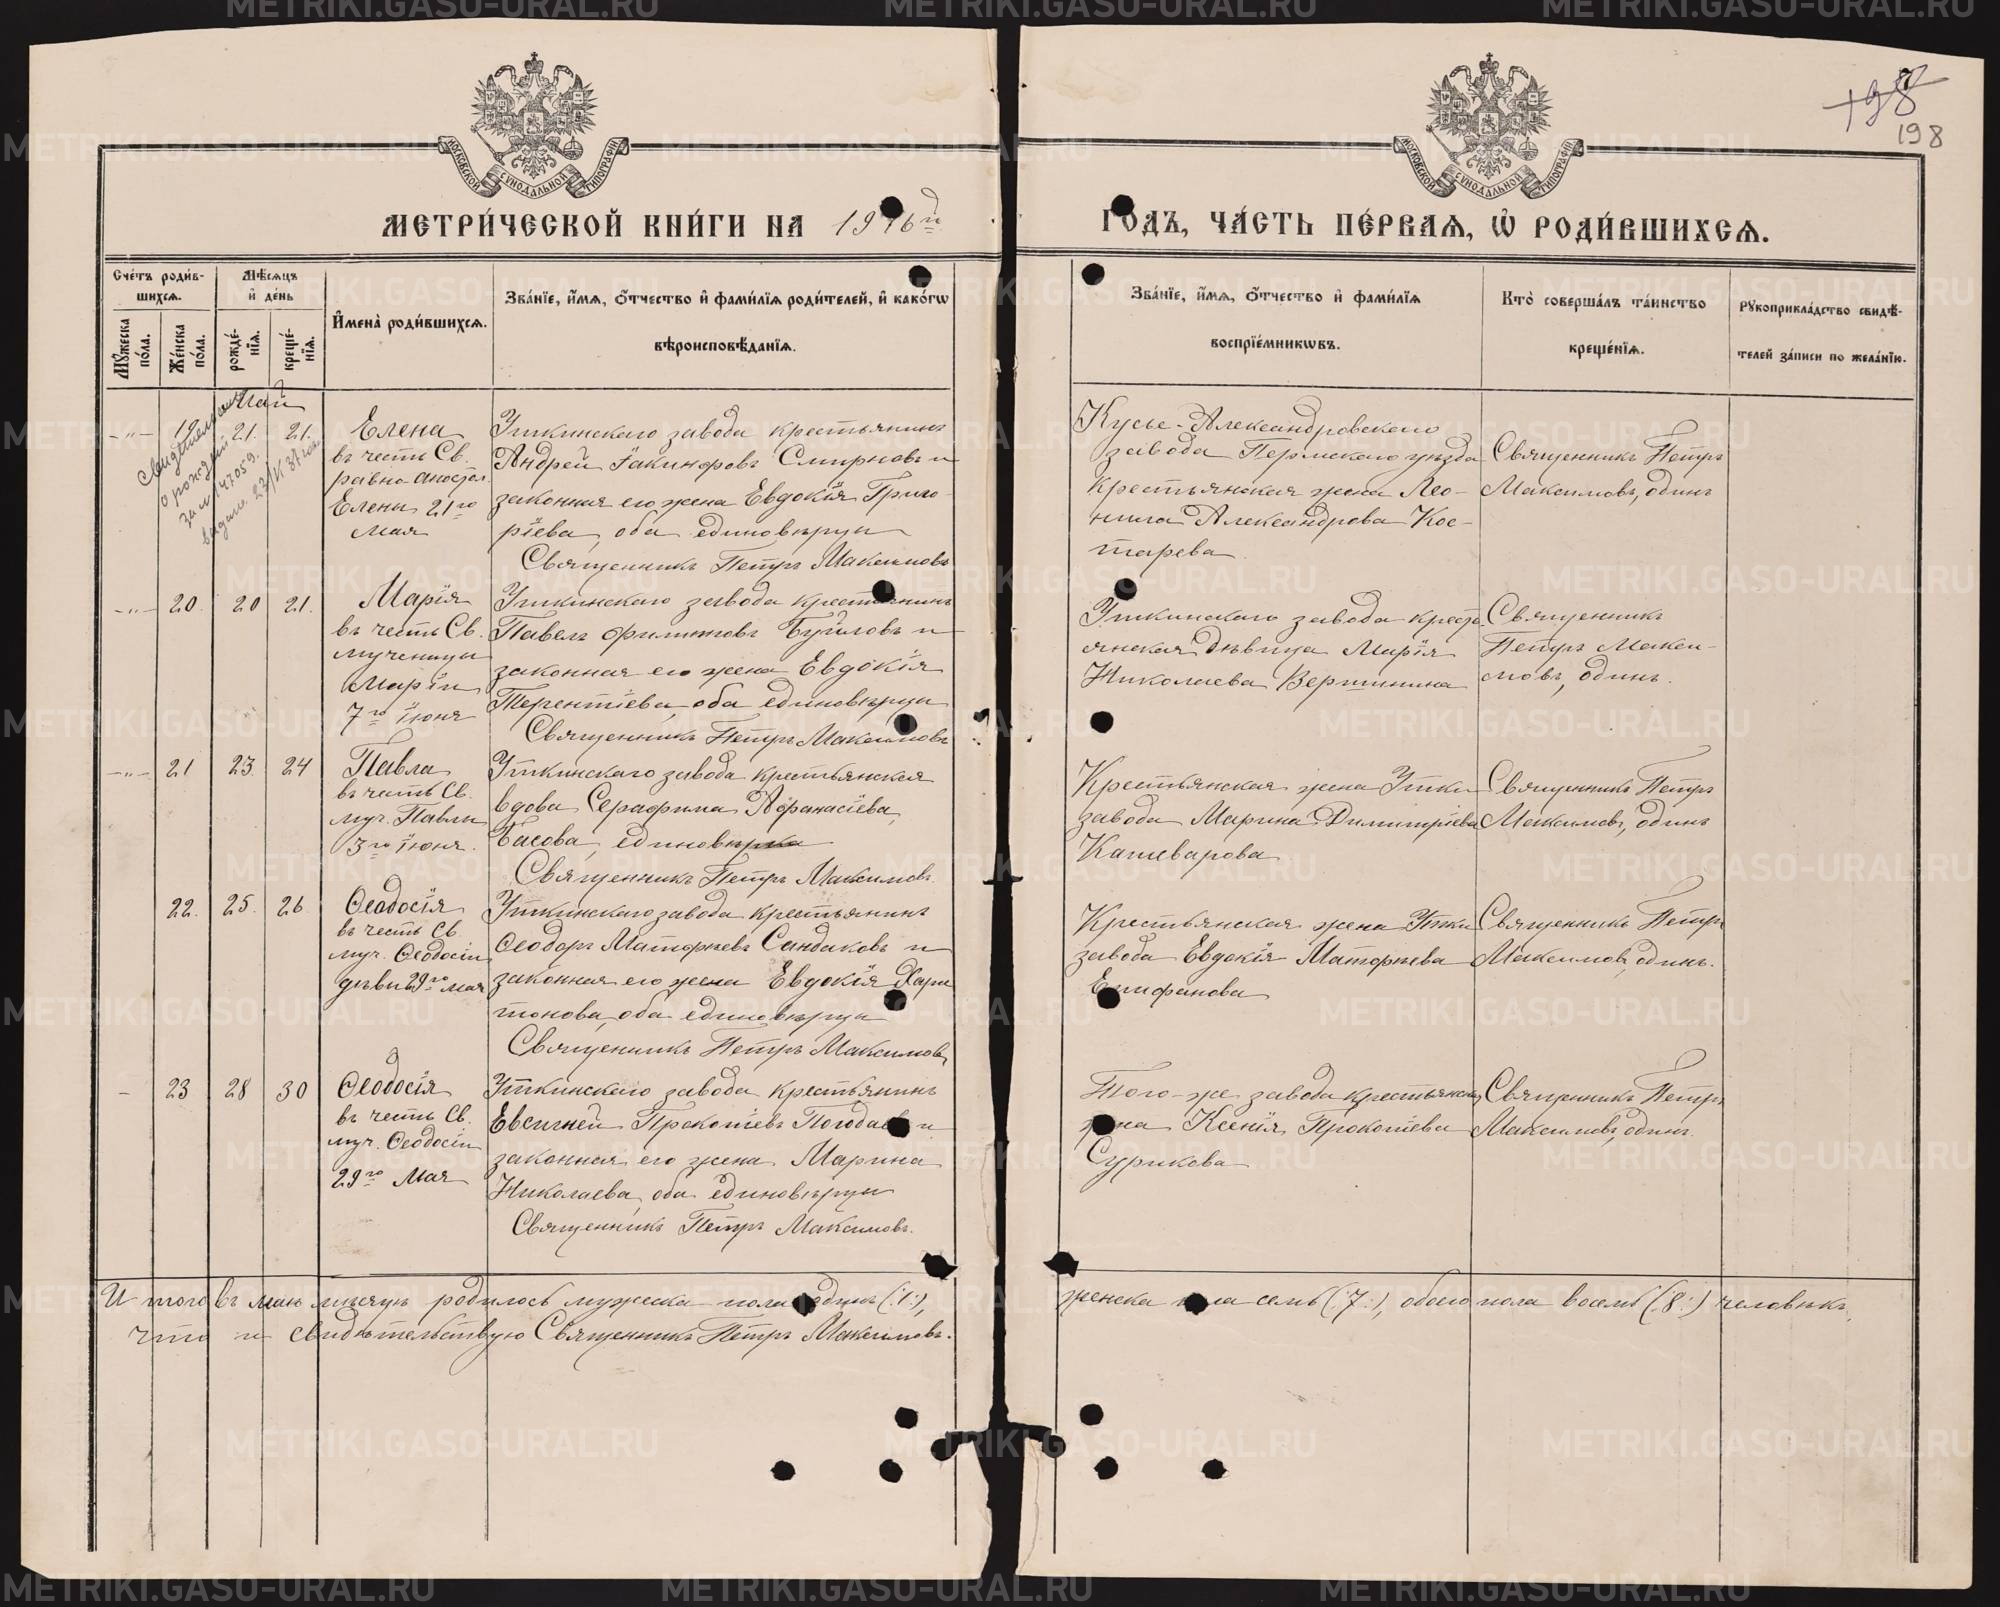 МОСКОВСКОЙ СѴНОДАЛЬНОЙ ТИПОГРАФІИ
МОСКОВСКОЙ СѴНОДАЛЬНОЙ ТИПОГРАФІИ
198
198
МЕТРИ́ЧЕСКОЙ КНИ́ГИ НА 1916 й
ГОДЪ, ЧА́СТЬ ПЕ́РВАЯ, Ѡ҆ РОДИ́ВШИХСЯ.
Сче́тъ роди́вшихся.
Му́жеска по́ла.
Же́нска по́ла.
Мѣ́сяцъ и҆ де́нь
рожде́нїя.
креще́нїя.
И҆мена̀ роди́вшихся.
Зва́нїе, и҆́мя, ѻ҆́тчество и҆ фами́лїя роди́телей, и҆ како́гѡ
вѣроисповѣ́данїя.
Зва́нїе, и҆́мя, ѻ҆́тчество и҆ фами́лїя
воспрїе́мниковъ.
Кто̀ соверша́лъ та́инство
креще́нїя.
Рꙋкоприкла́дство свидѣ́-
телей за́писи по жела́нїю.
Май
Свидетельство
о рождении
за № 147059.
выдано 23/IX 37 года
-„- 19 21. 21. Елена
въ честь Св.
равно апостол.
Елены 21го
мая
Уткинскаго завода крестьянинъ
Андрей Іакинфовъ Смирновъ и
законная его жена Евдокія Григо-
ріева, оба единовѣрцы
Священникъ Петръ Максимовъ
Кусье-Александровскаго
завода Пермскаго уѣзда
крестьянская жена Лео-
нила Александрова Кос-
тарева.
Священникъ Петръ
Максимовъ, одинъ
-„- 20. 20 21. Марія
въ честь Св.
мученицы
Маріи
7го іюня
Уткинскаго завода крестьянинъ
Павелъ Филиповъ Буйловъ и
законная его жена Евдокія
Терентіева, оба единовѣрцы
Священникъ Петръ Максимовъ
Уткинскаго завода кресть
янская дѣвица Марія
Николаева Вершинина
Священникъ
Петръ Макси-
мовъ, одинъ.
-„- 21 23. 24 Павла
въ честь Св.
муч. Павлы
3го іюня.
Уткинскаго завода крестьянская
вдова Серафима Афанасіева
Басова, единовѣрка
Священникъ Петръ Максимовъ.
Крестьянская жена Утки
завода Марина Димитріева
Кашеварова
Священникъ Петръ
Максимовъ, одинъ
22. 25. 26 Ѳеодосія
въ честь Св.
муч. Ѳеодосіи
дѣвы 29го мая
Уткинскаго завода крестьянинъ
Ѳеодоръ Маторневъ Сандаковъ и
законная его жена Евдокія Хари
тонова, оба единовѣрцы
Священникъ Петръ Максимовъ
Крестьянская жена Утки
завода Евдокія Маторнева
Епифанова
Священникъ Петръ
Максимовъ, одинъ.
- 23 28 30 Ѳеодосія
въ честь Св.
муч. Ѳеодосіи
29го Мая
Уткинскаго завода крестьянинъ
Евсигней Прокопіевъ Погодаевъ и
законная его жена Марина
Николаева, оба единовѣрцы
Священникъ Петръ Максимовъ.
Того-же завода крестьянская
жена Ксенія Прокопіева
Сурикова
Священникъ Петръ
Максимовъ, одинъ.
И того въ маѣ мѣсяцѣ родилось мужеска пола одинъ (:1:),
женска пола семь (:7:), обоего пола восемь (:8:) человѣкъ,
что и свидѣтельствую Священникъ Петръ Максимовъ.
METRIKI.GASO-URAL.RU